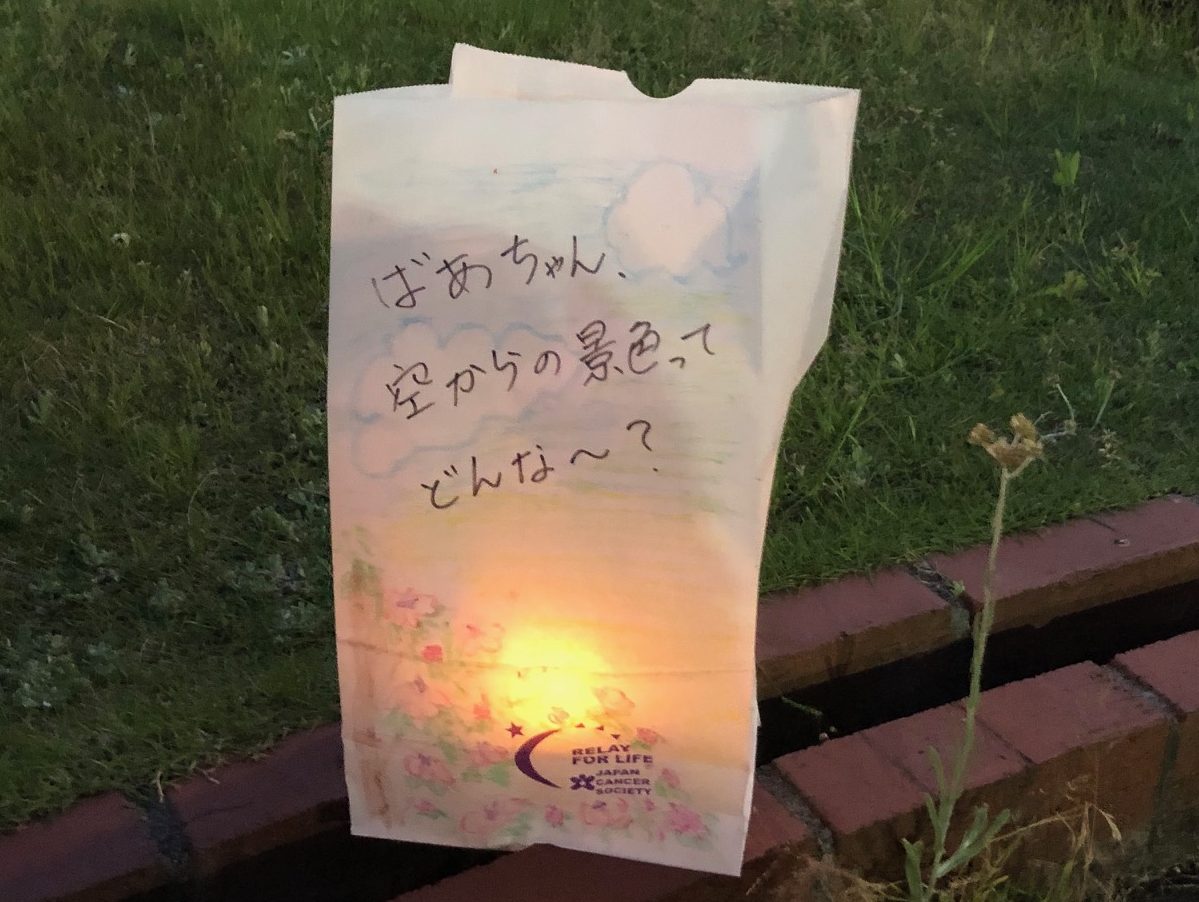 ばあちゃん、
空からの景色って
どんな〜?
RELAY
FOR LIFE
JAPAN
CANCER
SOCIETY